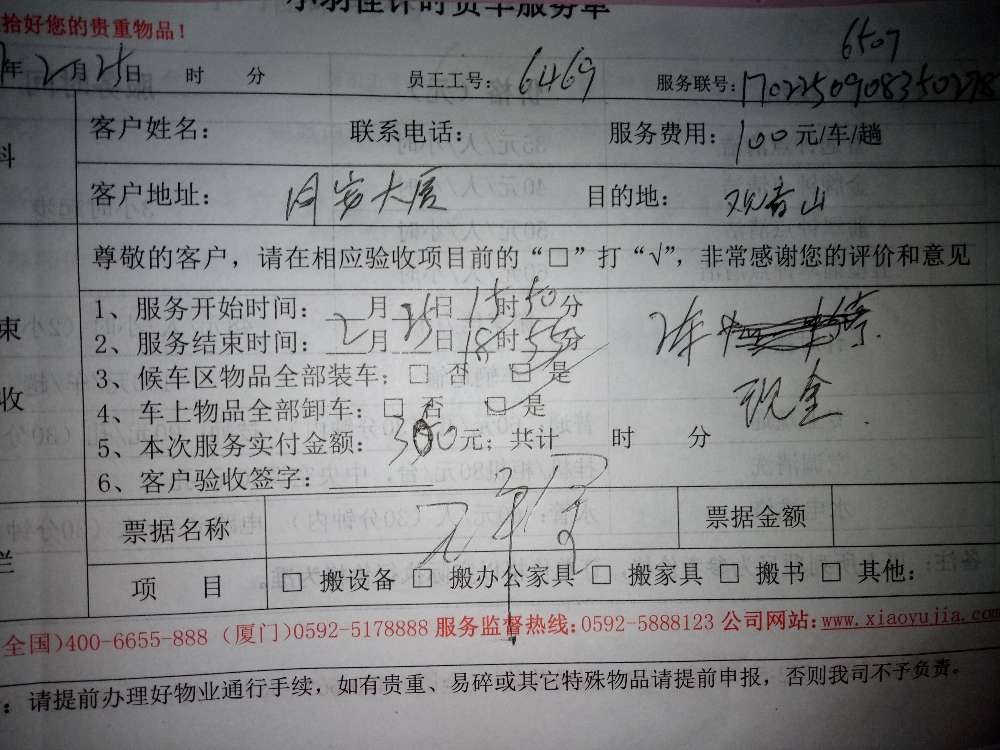 小羽佳计时货车服务单
拾好您的贵重物品！
年2月25日 时 分 员工工号：6469 服务联号：1702250908350278
6507
料 客户姓名： 联系电话： 服务费用：100元/车/趟
客户地址：同安大厦 目的地：观音山
尊敬的客户，请在相应验收项目前的“□”打“√”，非常感谢您的评价和意见
束 1、服务开始时间：2月25日15时50分
2、服务结束时间：2月25日18时55分
2车
3、候车区物品全部装车：□ 否 □ 是
收 4、车上物品全部卸车：□ 否 □ 是
现金
5、本次服务实付金额：300元；共计 时 分
6、客户验收签字：
栏 票据名称 票据金额
项 目 □ 搬设备 □ 搬办公家具 □ 搬家具 □ 搬书 □ 其他：
全国)400-6655-888 (厦门)0592-5178888 服务监督热线：0592-5888123 公司网站：www.xiaoyujia.com
：请提前办理好物业通行手续，如有贵重、易碎或其它特殊物品请提前申报，否则我司不予负责。